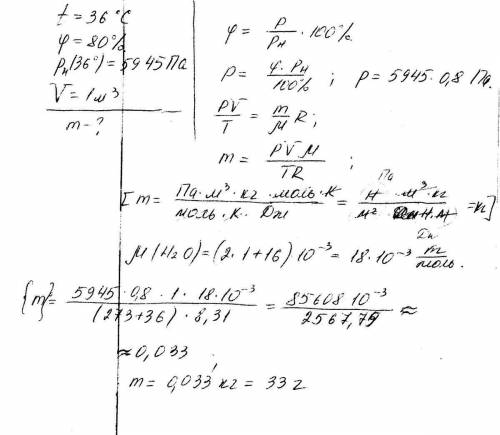 t = 36 °C
φ = 80%
Pн(36°) = 5945 Па
V = 1 м³
m - ?
φ = P/Pн · 100%
P = φ · Pн/100% ; P = 5945 · 0,8 Па.
PV/T = m/M R;
m = PVM/TR ;
[m = Па · м³ · кг · моль · К/моль · К · Дж = Н · м³ · кг/м² · Н·м = кг]
Па
Дж
M(H₂O) = (2 · 1 + 16) 10⁻³ = 18 · 10⁻³ m/моль.
{m} = 5945 · 0,8 · 1 · 18 · 10⁻³/(273+36) · 8,31 = 85608 10⁻³/2567,79 ≈
≈ 0,033
m = 0,033 кг = 33 г